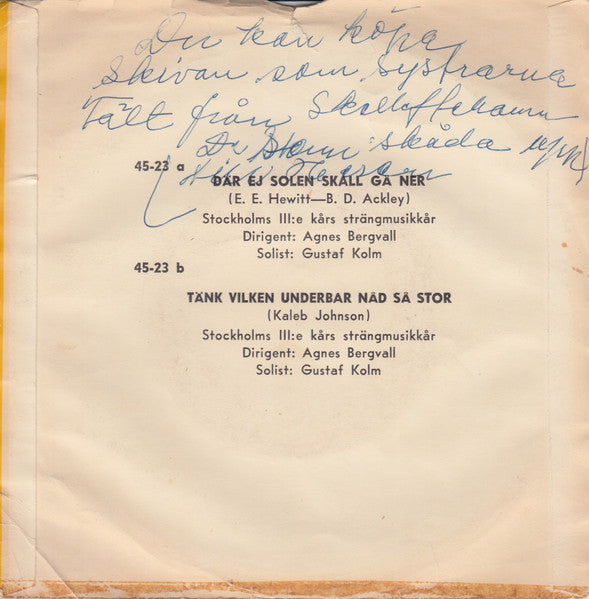 Du kan köpa
Skivan som systrarna
Tält från Skelleftehamn
Du Stem skåda upp
45-23 a
DÄR EJ SOLEN SKALL GÅ NER
(E. E. Hewitt—B. D. Ackley)
Stockholms III:e kårs strängmusikkår
Dirigent: Agnes Bergvall
Solist: Gustaf Kolm
45-23 b
TÄNK VILKEN UNDERBAR NÅD SÅ STOR
(Kaleb Johnson)
Stockholms III:e kårs strängmusikkår
Dirigent: Agnes Bergvall
Solist: Gustaf Kolm